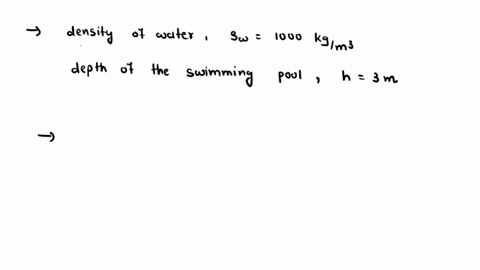 → density of water, ρw = 1000 kg/m3
depth of the swimming pool, h = 3 m
→